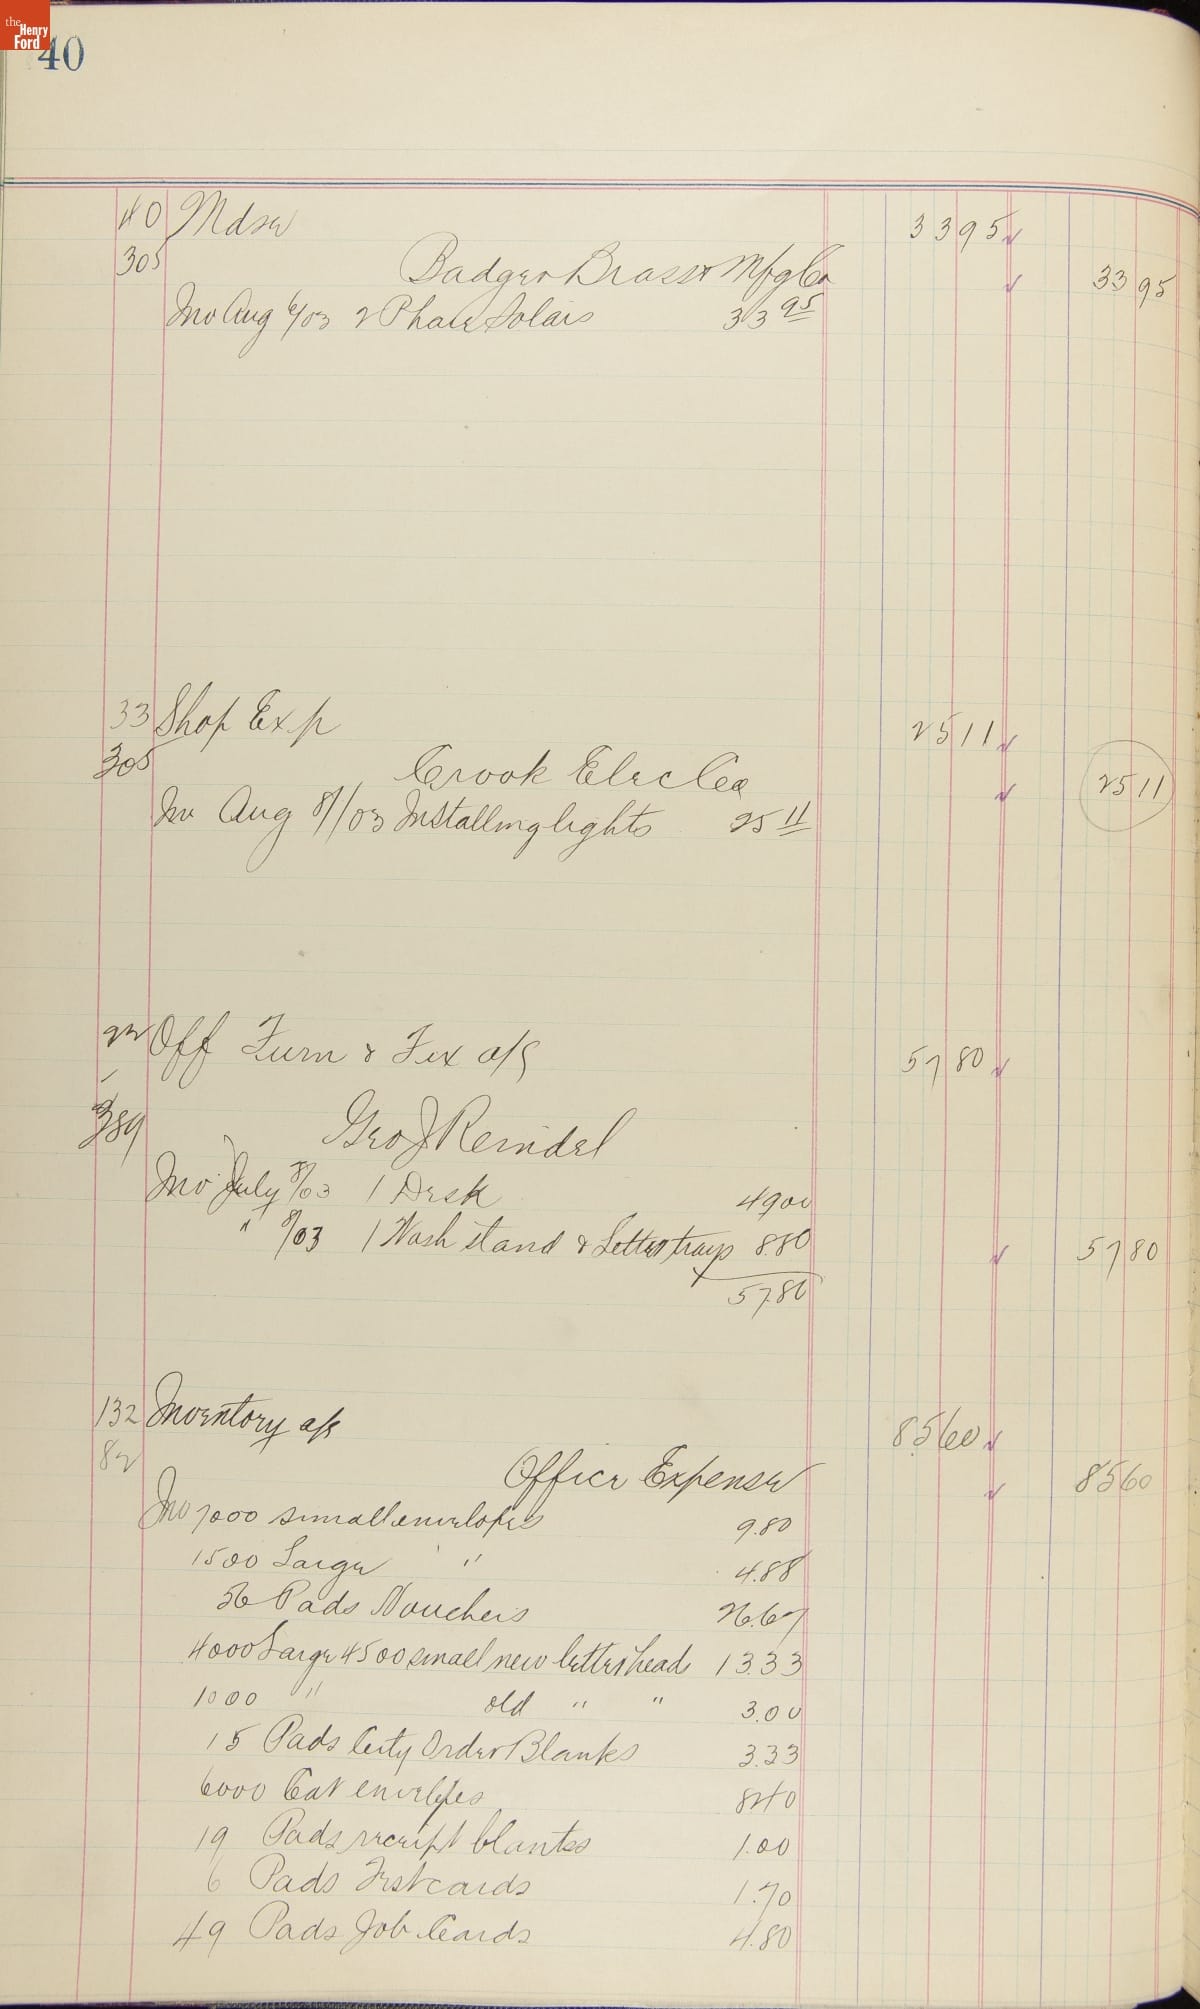 the Henry Ford
40
40 Mdse 33 95
305 Badger Brass Mfg Co 33 95
Inv Aug 6/03 2 Phare Solars 33 95
33 Shop Exp 25 11
305 Crook Elec Co 25 11
Inv Aug 8/03 Installing lights 25 11
22 Off Furn & Fix a/c 57 80
389 Geo J Reindel
Inv July 8/03 1 Desk 49 00
" 8/03 1 Wash stand & Letter trays 8.80 57 80
57.80
132 Inventory a/c 85 60
82 Office Expense 85 60
Inv 7000 small envelopes 9.80
1500 Large " " 4.88
56 Pads Vouchers 26.67
4000 Large 4500 small new letter heads 13.33
1000 " old " " 3.00
15 Pads City Order Blanks 3.33
6000 Cat envelopes 8 40
19 Pads receipt blanks 1.00
6 Pads Test cards 1.70
49 Pads Job Cards 4.80